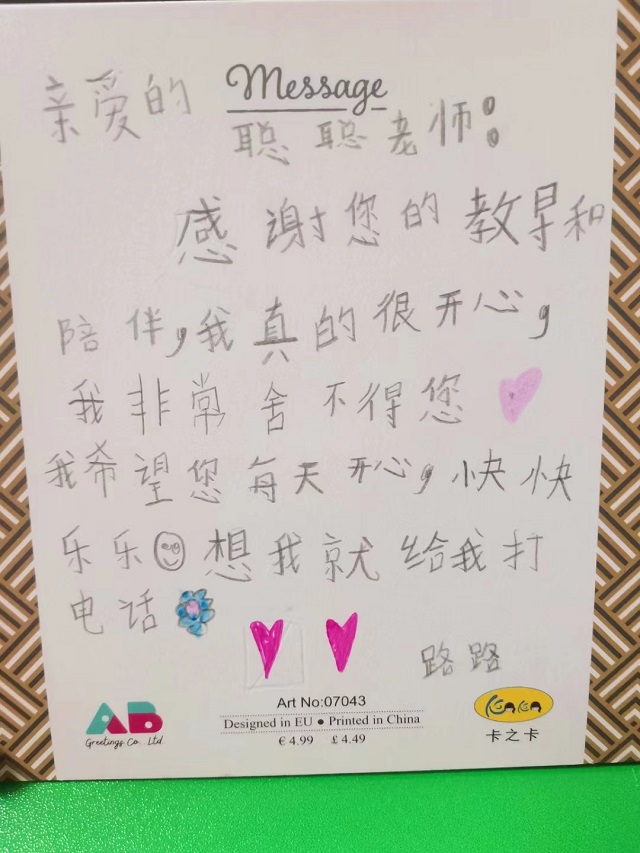 Message
亲爱的
聪聪老师：
感谢您的教早和
陪伴，我真的很开心，
我非常舍不得您
我希望您每天开心，快快
乐乐想我就给我打
电话
路路
AB
Greetings Co. Ltd.
Art No:07043
Designed in EU ● Printed in China
€ 4.99 £ 4.49
KaKa
卡之卡